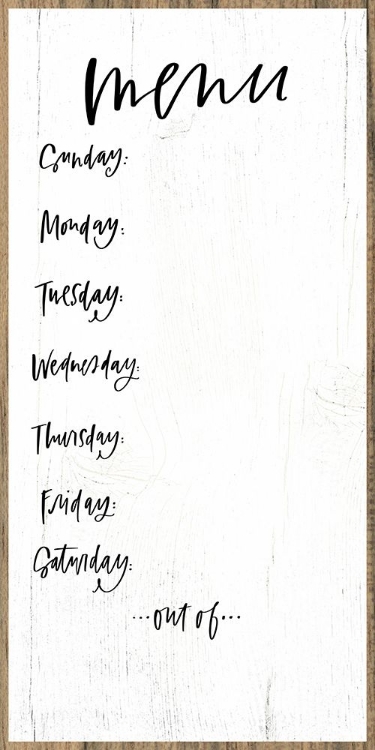 menu
Sunday:
Monday:
Tuesday:
Wednesday:
Thursday:
Friday:
Saturday:
...out of...